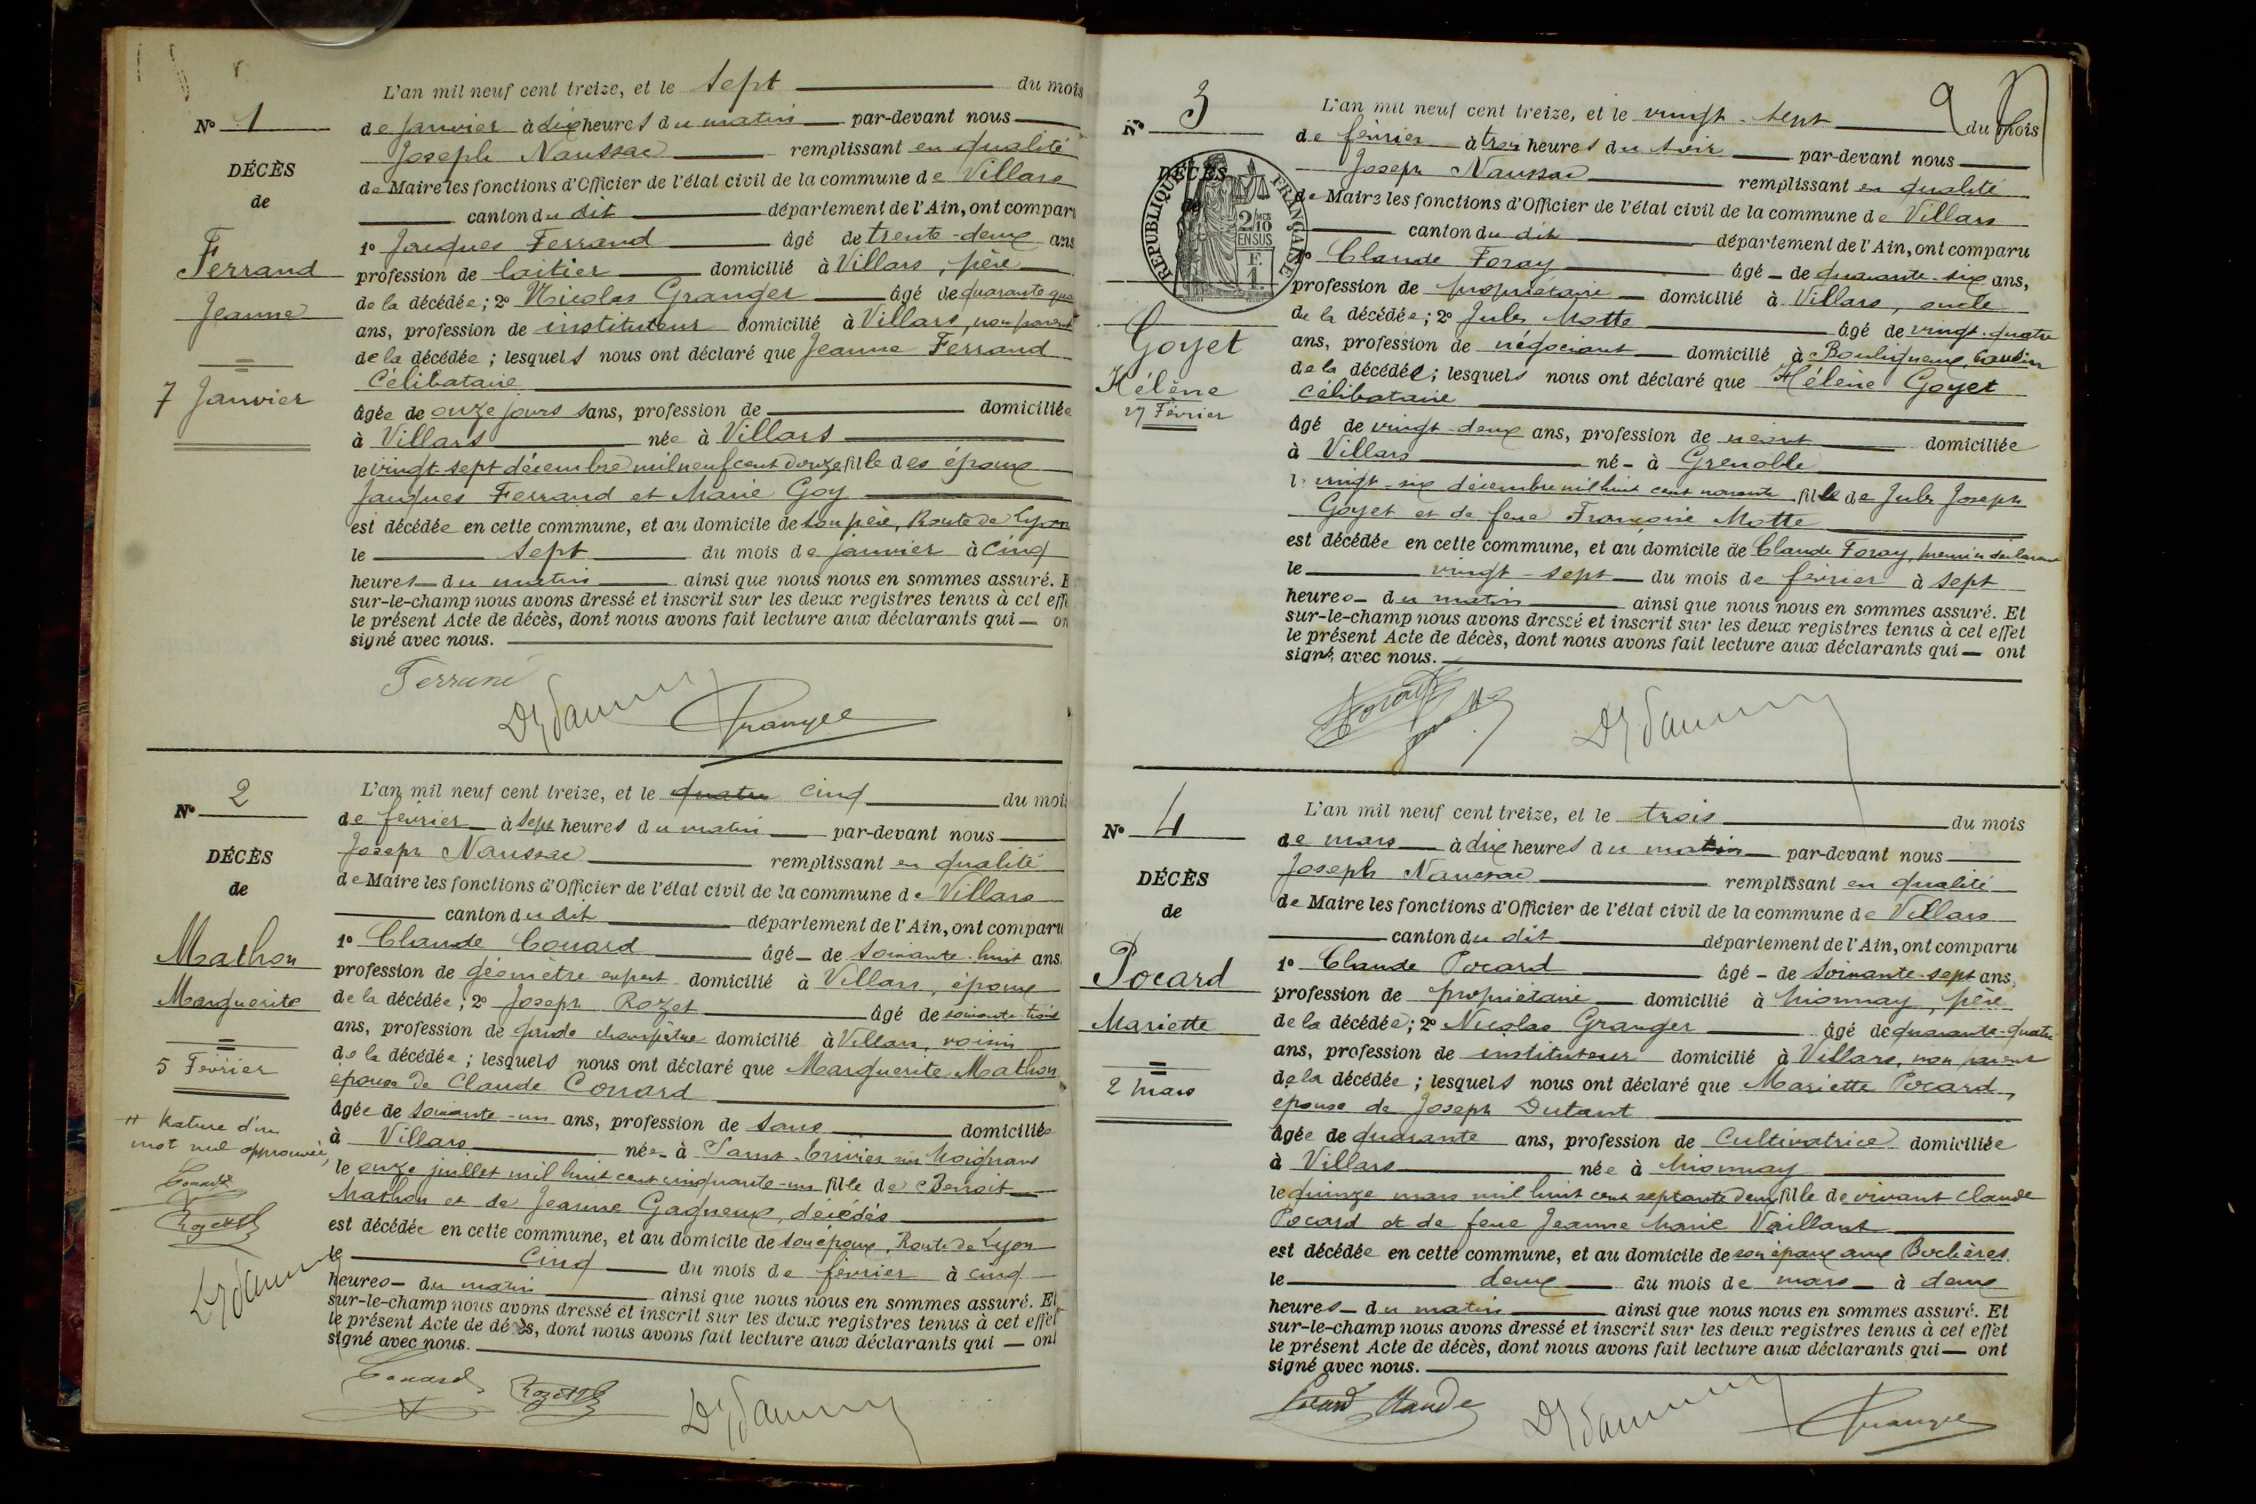 N° 1
DÉCÈS
de
Ferrand
Jeanne
7 Janvier
L'an mil neuf cent treize, et le sept du mois
de janvier à dix heures du matin par-devant nous
Joseph Naussac remplissant en qualité
de Maire les fonctions d'Officier de l'état civil de la commune de Villars
canton du dit département de l'Ain, ont comparu
1° Jacques Ferrand âgé de trente-deux ans
profession de laitier domicilié à Villars, père
de la décédée ; 2° Nicolas Granger âgé de quarante qua
ans, profession de instituteur domicilié à Villars, non parent
de la décédée ; lesquels nous ont déclaré que Jeanne Ferrand
Célibataire
âgée de onze jours sans, profession de domiciliée
à Villars née à Villars
le vingt-sept décembre mil neuf cent douze fille des époux
Jacques Ferrand et Marie Goy
est décédée en cette commune, et au domicile de son père, Route de Lyon
le sept du mois de janvier à cinq
heures du matin ainsi que nous nous en sommes assuré. E
sur-le-champ nous avons dressé et inscrit sur les deux registres tenus à cet effe
le présent Acte de décès, dont nous avons fait lecture aux déclarants qui — on
signé avec nous.
Ferrand
Granger
N° 2
DÉCÈS
de
Mathon
Marguerite
5 Février
Rature d'un
mot nul approuvée,
Couard
Rozet
L'an mil neuf cent treize, et le quatre cinq du mois
de février à sept heures du matin par-devant nous
Joseph Naussac remplissant en qualité
de Maire les fonctions d'Officier de l'état civil de la commune de Villars
canton du dit département de l'Ain, ont comparu
1° Claude Couard âgé — de soixante-huit ans
profession de géomètre expert domicilié à Villars, époux
de la décédée ; 2° Joseph Rozet âgé de soixante-trois
ans, profession de garde champêtre domicilié à Villars, voisin
de la décédée ; lesquels nous ont déclaré que Marguerite Mathon
épouse de Claude Couard
âgée de soixante-un ans, profession de sans domiciliée
à Villars née à Saint-Trivier sur Moignans
le onze juillet mil huit cent cinquante-un fille de Benoit
Mathon et de Jeanne Gagneux, décédés
est décédée en cette commune, et au domicile de son époux, Route de Lyon
le cinq du mois de février à cinq
heures — du matin ainsi que nous nous en sommes assuré. Et
sur-le-champ nous avons dressé et inscrit sur les deux registres tenus à cet effet
le présent Acte de décès, dont nous avons fait lecture aux déclarants qui — ont
signé avec nous.
Couard
Rozet
N° 3
DÉCÈS
de
RÉPUBLIQUE FRANÇAISE
2/10
EN SUS
F.
1.
Goyet
Hélène
27 Février
L'an mil neuf cent treize, et le vingt-sept du mois
de février à trois heures du soir par-devant nous
Joseph Naussac remplissant en qualité
de Maire les fonctions d'Officier de l'état civil de la commune de Villars
canton du dit département de l'Ain, ont comparu
1° Claude Foray âgé — de quarante-six ans,
profession de propriétaire domicilié à Villars, oncle
de la décédée ; 2° Jules Motte âgé de vingt-quatre
ans, profession de négociant domicilié à Bouligneux, cousin
de la décédée ; lesquels nous ont déclaré que Hélène Goyet
célibataire
âgé de vingt-deux ans, profession de néant domiciliée
à Villars né — à Grenoble
le vingt-six décembre mil huit cent nonante fille de Jules Joseph
Goyet et de feue Françoise Motte
est décédée en cette commune, et au domicile de Claude Foray, premier déclarant
le vingt-sept du mois de février à sept
heures — du matin ainsi que nous nous en sommes assuré. Et
sur-le-champ nous avons dressé et inscrit sur les deux registres tenus à cet effet
le présent Acte de décès, dont nous avons fait lecture aux déclarants qui — ont
signé avec nous.
N° 4
DÉCÈS
de
Pocard
Mariette
2 Mars
L'an mil neuf cent treize, et le trois du mois
de mars à dix heures du matin par-devant nous
Joseph Naussac remplissant en qualité
de Maire les fonctions d'Officier de l'état civil de la commune de Villars
canton du dit département de l'Ain, ont comparu
1° Claude Pocard âgé — de soixante-sept ans,
profession de propriétaire domicilié à Mionnay, père
de la décédée ; 2° Nicolas Granger âgé de quarante-quatre
ans, profession de instituteur domicilié à Villars, non parent
de la décédée ; lesquels nous ont déclaré que Mariette Pocard,
épouse de Joseph Dutant
âgée de quarante ans, profession de Cultivatrice domiciliée
à Villars née à Mionnay
le quinze mars mil huit cent septante deux fille de vivant Claude
Pocard et de feue Jeanne Marie Vaillant
est décédée en cette commune, et au domicile de son époux aux Boclières
le deux du mois de mars à deux
heures — du matin ainsi que nous nous en sommes assuré. Et
sur-le-champ nous avons dressé et inscrit sur les deux registres tenus à cet effet
le présent Acte de décès, dont nous avons fait lecture aux déclarants qui — ont
signé avec nous.
Pocard Claude
Granger